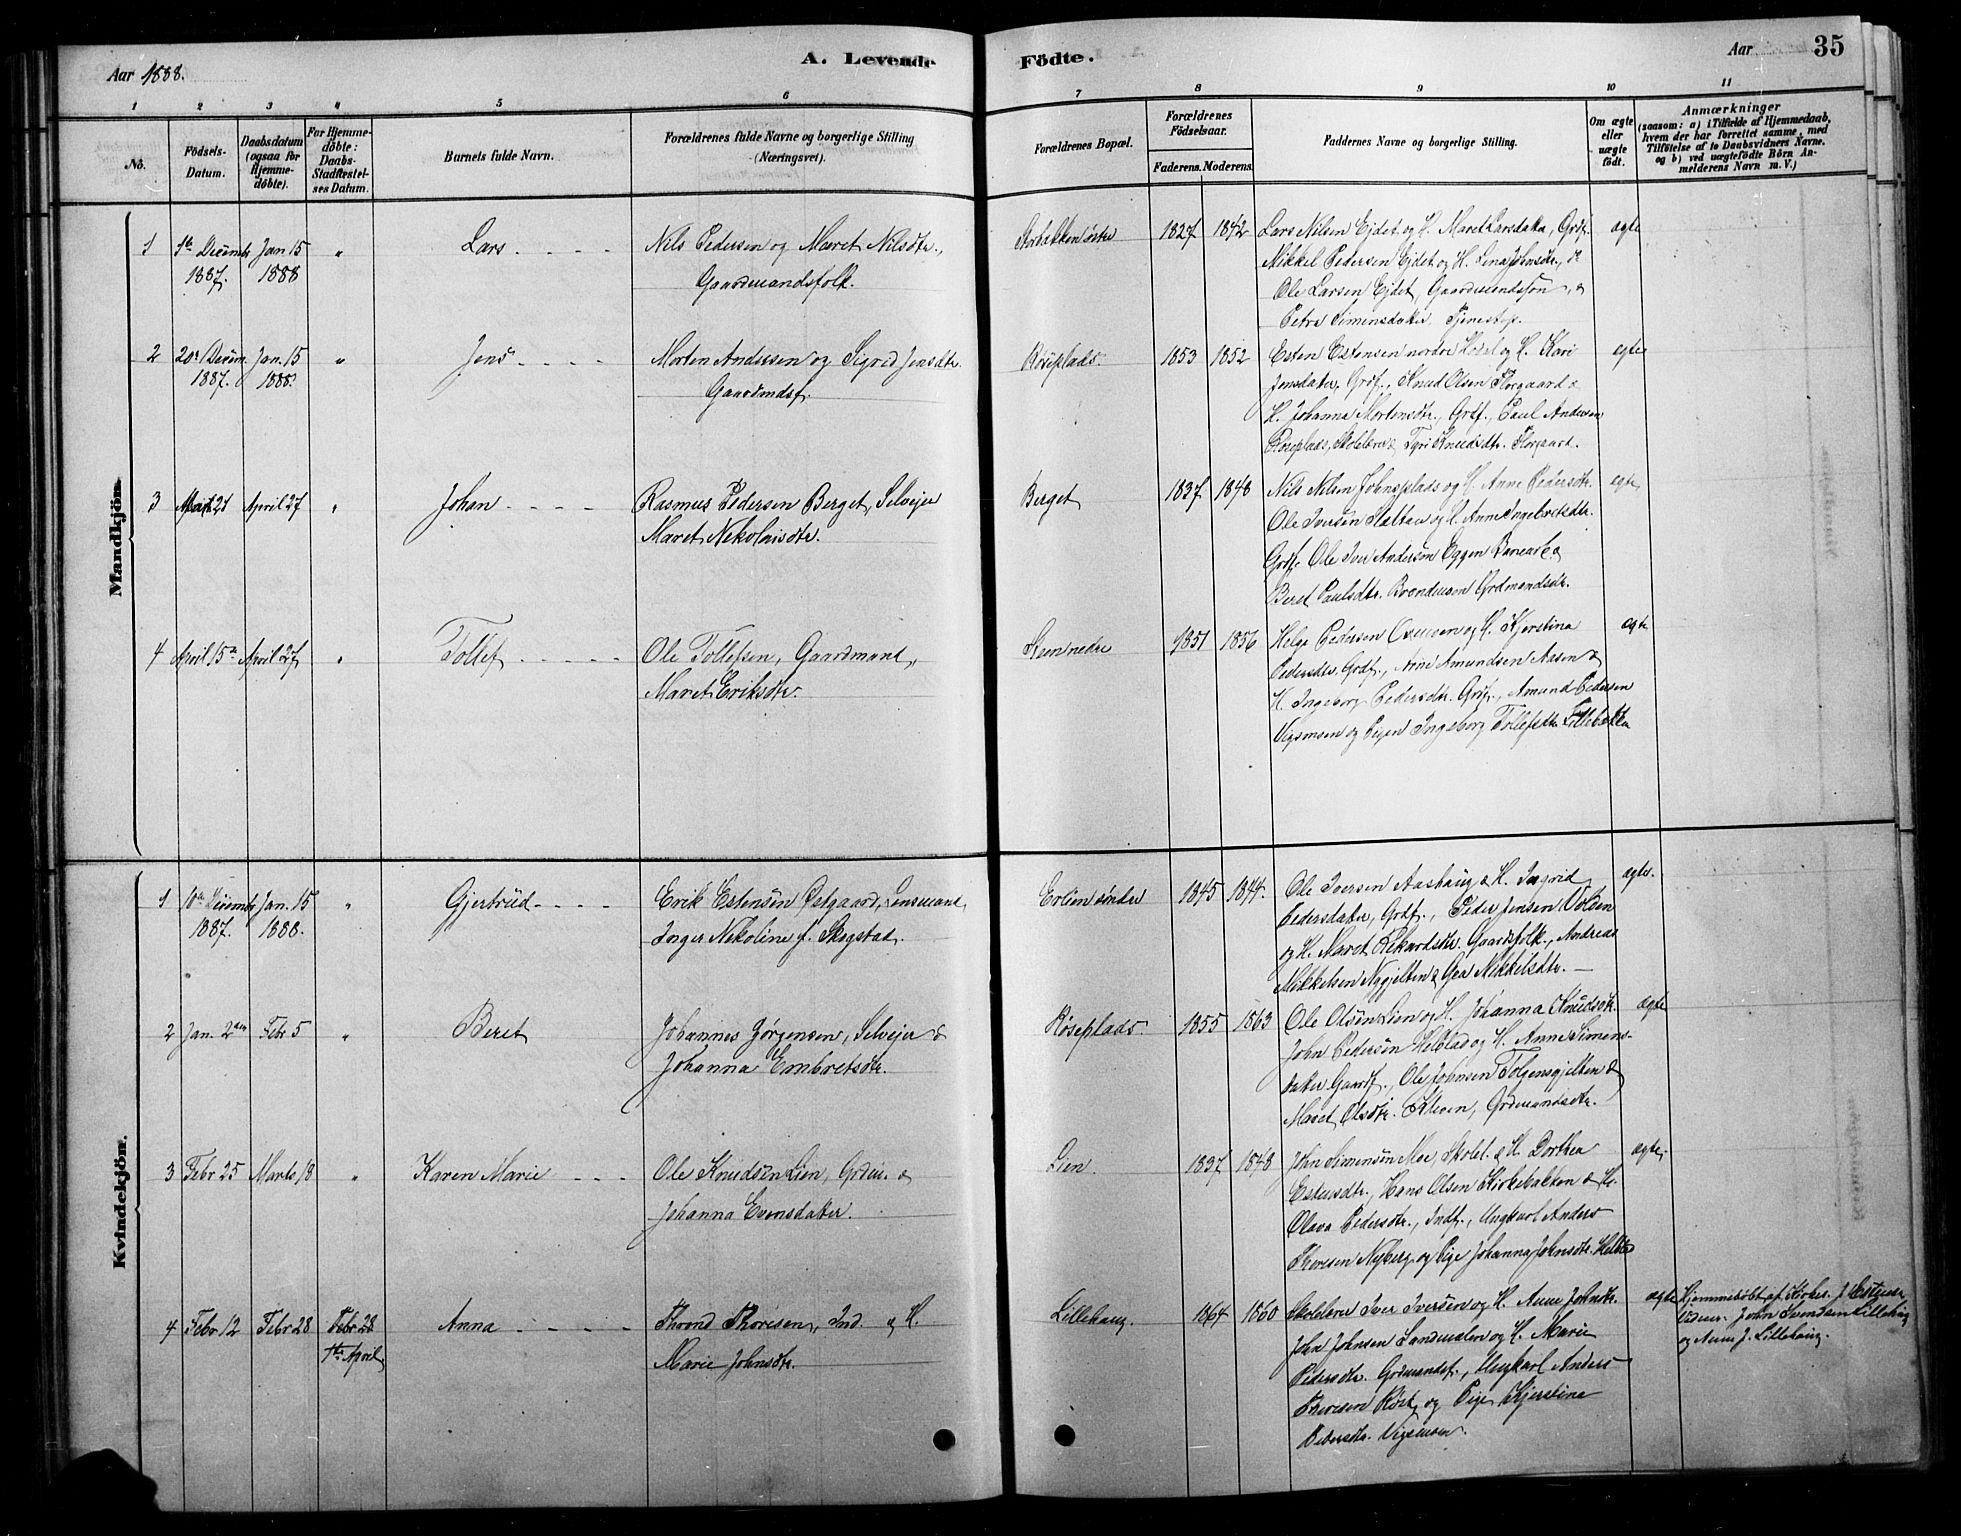 Aar 1888.
A. Levende
Födte.
Aar
35
1
2
3
4
5
6
7
8
9
10
11
No.
Födsels-
Datum.
Daabsdatum
(ogsaa for
Hjemme-
döbte).
For Hjemme-
döbte:
Daabs-
Stadfæstel-
ses Datum.
Barnets fulde Navn.
Forældrenes fulde Navne og borgerlige Stilling
(Næringsvei).
Forældrenes Bopæl.
Forældrenes
Födselsaar.
Faderens.
Moderens.
Faddernes Navne og borgerlige Stilling.
Om ægte
eller
uægte
født.
Anmærkninger
(saasom: a) i Tilfælde af Hjemmedaab,
hvem der har forrettet samme, med
Tilföielse af to Daabsvidners Navne,
og b) ved uægtefödte Börn An-
melderens Navn m. V.)
Mandkjön.
1
Decembr
1887.
Jan 15
1888
"
Lars
Nils Pedersen og Maret Nilsdtr.,
Gaardmandsfolk.
1827
1842
Lars Nilsen Ejdet og H. Maret Larsdatter, Grdf.
Mikkel Pedersen Ejdet og H. Lina Johnsdtr.,
Ole Larsen Ejdet, Gaardmandssøn, &
Petra Simensdatter, Tjenestep.
ægte
2
20de Decem.
1887.
Jan. 15
1888.
"
Jens
Morten Andersen og Sigrid Jensdtr.
Gaardmdsf.
Røseplads.
1853
1852
Esten Estensen nordre og H. Kari
Jonsdatter, Grdf., Knud Olsen Storgaard &
H. Johanna Mortensdtr., Grdf., Paul Andersen
Røseplads, Skolelærer & Knudsdtr. Storgaard.
ægte
3
April 27
"
Johan
Rasmus Pedersen Berget, Selvejer
Maret Nekolaisdtr.
Berget
1837
1848
Nils Nilsen Johnsplads og H. Anne Pedersdtr.
Ole Iversen og H. Anne Ingebretsdtr.
Grdf. Ole Iver Andersen Eggen &
Beret Paulsdtr. Grdmandsdtr.
ægte
4
April 15de
April 27
"
Tollef
Ole Tollefsen, Gaardmand,
Maret Eriksdtr.
1851
1856
Helge Pedersen og H. Kjerstina
Pedersdtr. Grdf., Arne Amundsen Aasen &
H. Ingeborg Pedersdtr. Grdf., Amund Pedersen
Vigemoen og Pigen Ingeborg Tollefsdtr.
ægte
Kvindekjön.
1
10de Decembr
1887.
Jan. 15
1888.
"
Gjertrud
Erik Estensen Østgaard, Lensmand,
Inger Nekoline f. Skogstad.
Erlien søndre
1845
1844.
Ole Iversen Aashaug & H. Ingrid
Pedersdatter, Grdf., Peder Jensen Volden
og H. Maret Rikardsdtr. Gaardsfolk., Andreas
Mikkelsen Nygjelten & Gea Mikkelsdtr.
ægte.
2
Jan. 2den
Febr 5
"
Beret
Johannes Jørgensen, Selvejer &
Johanna Embretsdtr.
Røseplads.
1855
1863
Ole Olsen Lien og H. Johanna Knudsdtr.
John Pedersen og H. Anne Simens-
datter Gaardf., Ole Johnsen Tolgensgjelten &
Maret Olsdtr. Kleven, Grdmandsdtr.
ægte
3
Febr 25
Marts 18
"
Karen Marie
Ole Knudsen Lien, Grdm. &
Johanna Evensdatter.
Lien.
1837
1848
John Simensen Moe, Skolel. & H. Dorthea
Estensdtr., Hans Olsen Kirkebakken & H.
Olava Pedersdtr., Indf., Ungkarl Anders
Thoresen Nyberg og Pige Johanna Johnsdtr.
ægte.
4
Febr 12
Febr 28
Febr 28
1ste April.
Anna
Thrond Thoresen, Ind. og H.
Marie Johnsdtr.
Lillehaug.
1864
1860
Skolelærer Iver Iversen og H. Anne Johnsdtr.
John Johnsen Sandmælen og H. Marie
Pedersdtr. Grdmandsf., Ungkarl Anders
Thoresen Røst og Pige Kjerstina
Pedersdtr. Vigemoen.
ægte
Hjemmedøbt af Kirkes. J. Estensen
John Svendsen Lillehaug
og Anne J. Lillehaug.